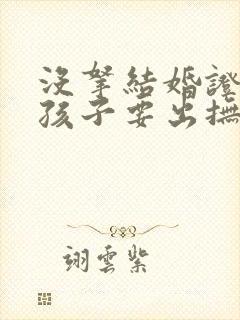 沒拏結婚證
孩子要出撫
翊雲紫